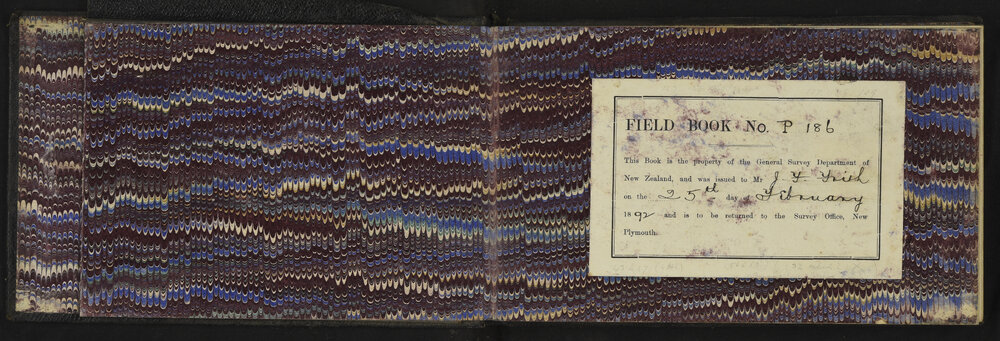 FIELD BOOK No. P 186
This Book is the property of the General Survey Department of
New Zealand, and was issued to Mr J. F. Frith
on the 25th day of February
1892 and is to be returned to the Survey Office, New
Plymouth.